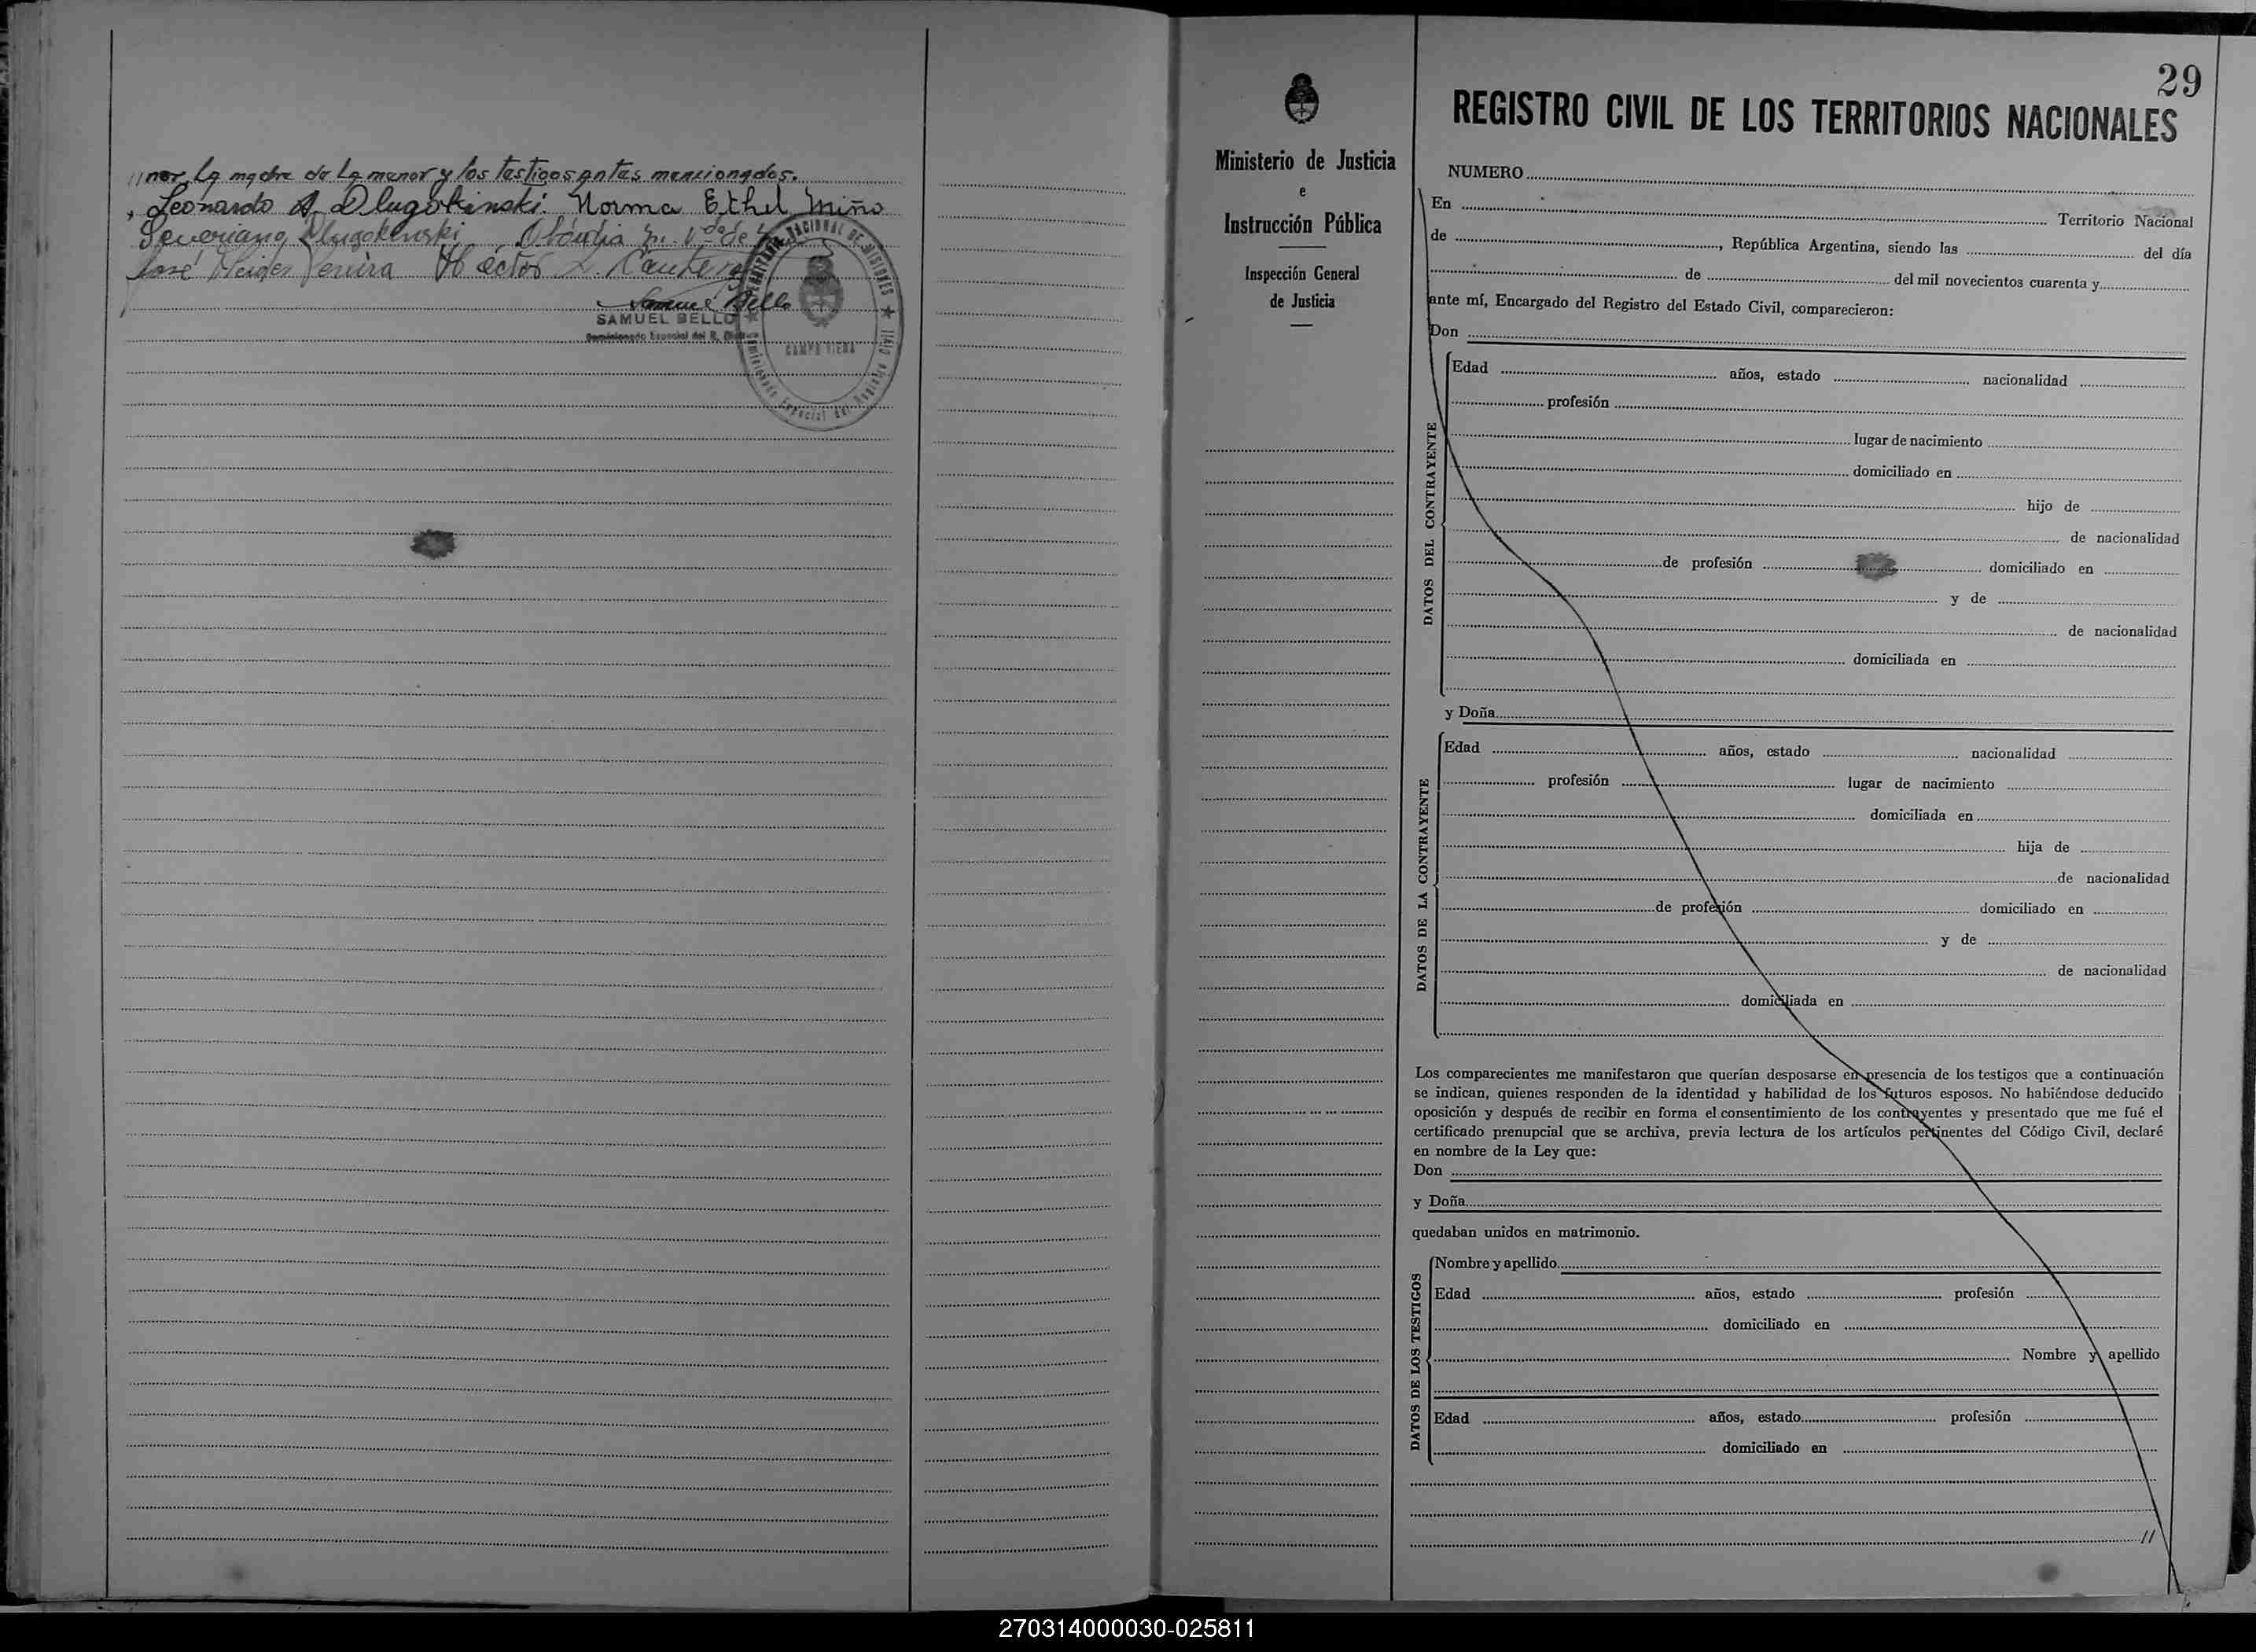 //nor, la madre de la menor y los testigos antes mencionados.
Leonardo A. Dlugokinski. Norma Ethel Miño
Severiano Dlugokenski Vda de
José Pereira Hector L.
Samuel Bello
SAMUEL BELLO
Comisionado Especial del R. Civil
NACIONAL DE MISIONES
CAMPO VIERA
Comisionado Especial del Registro Civil
Ministerio de Justicia
e
Instrucción Pública
Inspección General
de Justicia
29
REGISTRO CIVIL DE LOS TERRITORIOS NACIONALES
NUMERO
En Territorio Nacional
de , República Argentina, siendo las del día
de del mil novecientos cuarenta y
ante mí, Encargado del Registro del Estado Civil, comparecieron:
Don
DATOS DEL CONTRAYENTE
Edad años, estado nacionalidad
profesión
lugar de nacimiento
domiciliado en
hijo de
de nacionalidad
de profesión domiciliado en
y de
de nacionalidad
domiciliada en
y Doña
DATOS DE LA CONTRAYENTE
Edad años, estado nacionalidad
profesión lugar de nacimiento
domiciliada en
hija de
de nacionalidad
de profesión domiciliado en
y de
de nacionalidad
domiciliada en
Los comparecientes me manifestaron que querían desposarse en presencia de los testigos que a continuación
se indican, quienes responden de la identidad y habilidad de los futuros esposos. No habiéndose deducido
oposición y después de recibir en forma el consentimiento de los contrayentes y presentado que me fué el
certificado prenupcial que se archiva, previa lectura de los artículos pertinentes del Código Civil, declaré
en nombre de la Ley que:
Don
y Doña
quedaban unidos en matrimonio.
DATOS DE LOS TESTIGOS
Nombre y apellido
Edad años, estado profesión
domiciliado en
Nombre y apellido
Edad años, estado profesión
domiciliado en
//
270314000030-025811